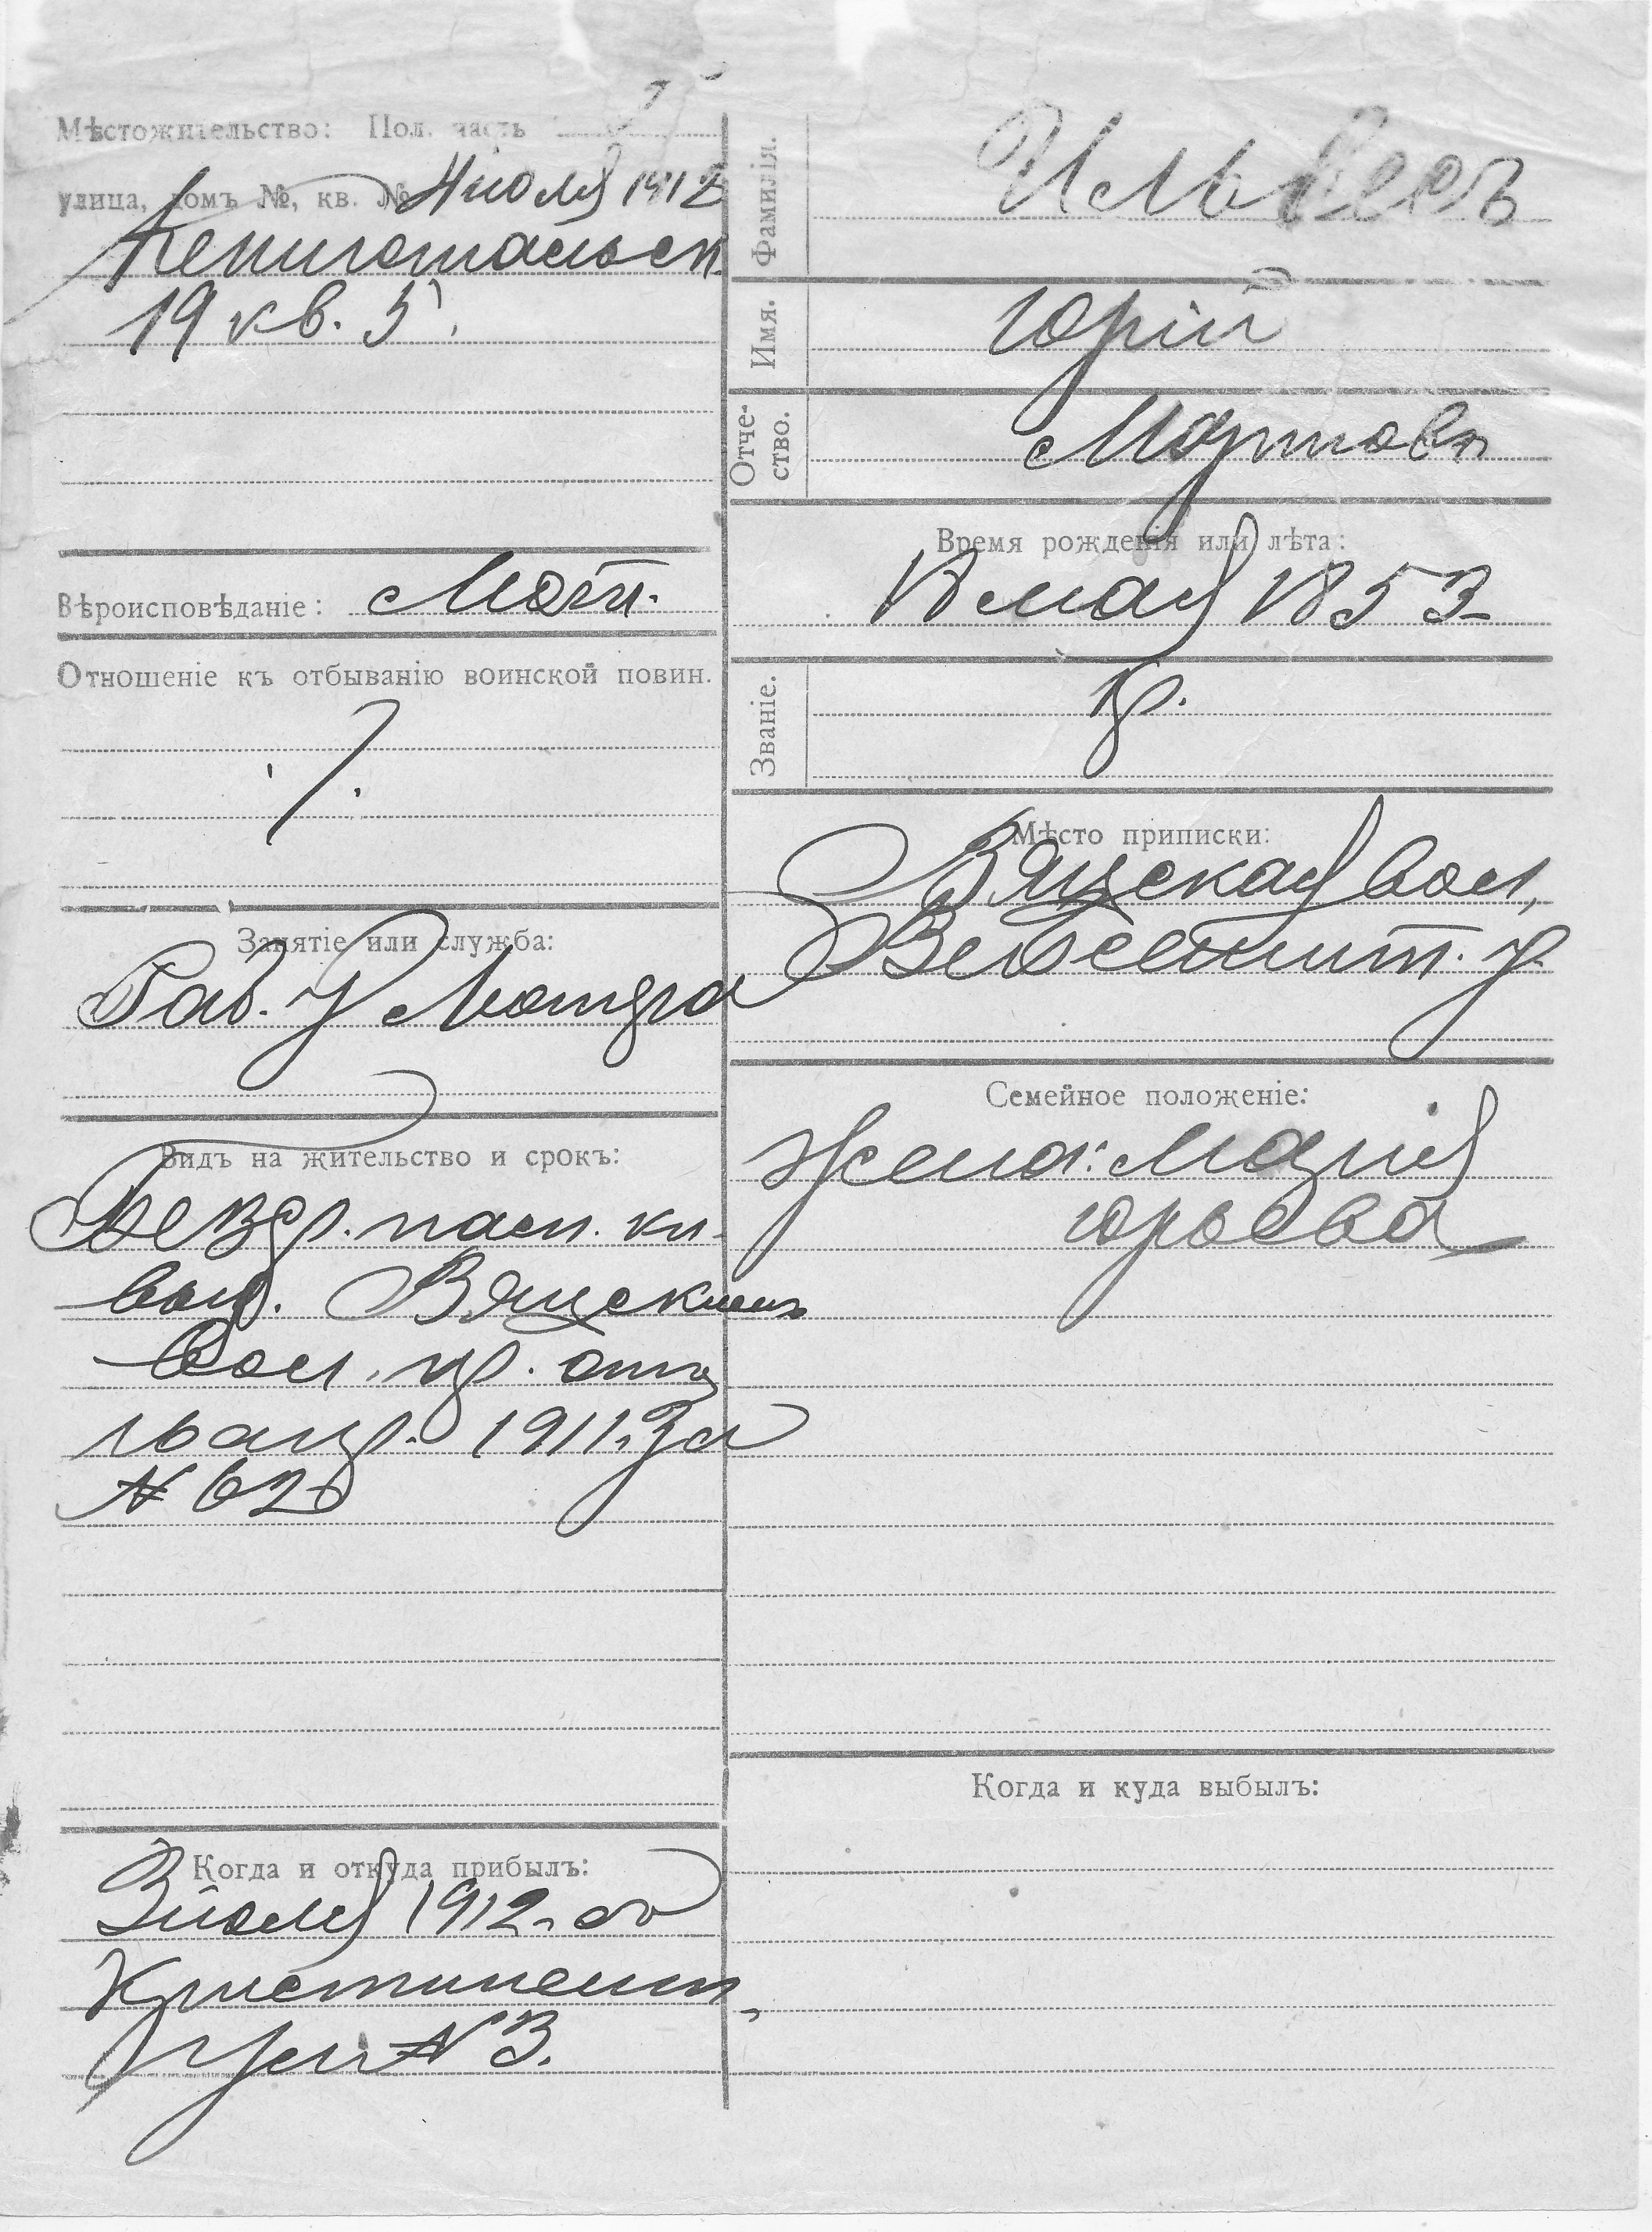 Мѣстожительство: Пол. часть
улица, домъ №, кв. № 4 июля 1912
Кенигстальск.
19 кв. 5.
Вѣроисповѣданіе: Лют.
Отношеніе къ отбыванію воинской повин.
Занятіе или служба:
Раб. у Лютера
Видъ на жительство и срокъ:
Безср. пасп. кн.
выд. Вяцскимъ
Вол. пр. отъ
1911 за
№ 626
Когда и откуда прибылъ:
3 іюля 1912. со
Христинент.
№ 3.
Фамилія.
Имя.
Юрій
Отче-
ство.
Мартовъ
Время рожденія или лѣта:
18 мая 1853
Званіе.
кр.
Мѣсто приписки:
Вяцская вол.
Везенбергск. у.
Семейное положеніе:
Жена: Марія
Юрьева
Когда и куда выбылъ: